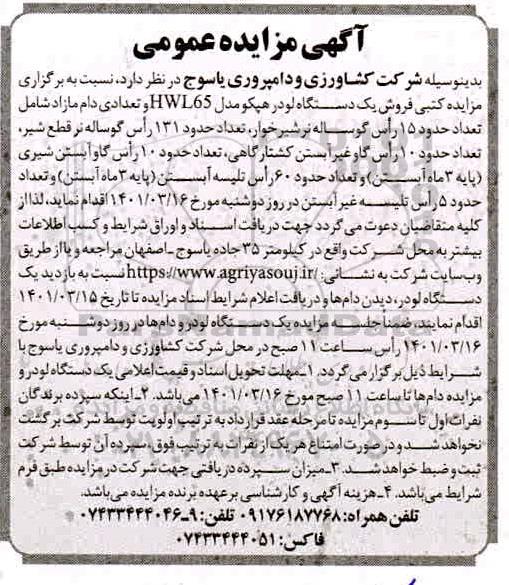 آگهی مزایده عمومی
بدینوسیله شرکت کشاورزی و دامپروری یاسوج در نظر دارد، نسبت به برگزاری
مزایده کتبی فروش یک دستگاه لودر هپکو مدل HWL65 و تعدادی دام مازاد شامل
تعداد حدود ۱۵ رأس گوساله نر شیرخوار، تعداد حدود ۱۳۱ رأس گوساله نر قطع شیر،
تعداد حدود ۱۰ رأس گاو غیرآبستن کشتارگاهی، تعداد حدود ۱۰ رأس گاو آبستن شیری
(پایه ۳ ماه آبستن) و تعداد حدود ۶۰ رأس تلیسه آبستن (پایه ۳ ماه آبستن) و تعداد
حدود ۵ رأس تلیسه غیر آبستن در روز دوشنبه مورخ ۱۴۰۱/۰۳/۱۶ اقدام نماید، لذا از
کلیه متقاضیان دعوت می گردد جهت دریافت اسناد و اوراق شرایط و کسب اطلاعات
بیشتر به محل شرکت واقع در کیلومتر ۳۵ جاده یاسوج ـ اصفهان مراجعه و یا از طریق
وب سایت شرکت به نشانی: https://www.agriyasouj.ir/ نسبت به بازدید یک
دستگاه لودر، دیدن دام ها و دریافت اعلام شرایط اسناد مزایده تا تاریخ ۱۴۰۱/۰۳/۱۵
اقدام نمایند، ضمناً جلسه مزایده یک دستگاه لودر و دام ها در روز دوشنبه مورخ
۱۴۰۱/۰۳/۱۶ رأس ساعت ۱۱ صبح در محل شرکت کشاورزی و دامپروری یاسوج با
شرایط ذیل برگزار می گردد. ۱ـ مهلت تحویل اسناد و قیمت اعلامی یک دستگاه لودر و
مزایده دام ها تا ساعت ۱۱ صبح مورخ ۱۴۰۱/۰۳/۱۶ می باشد. ۲ـ اینکه سپرده برندگان
نفرات اول تا سوم مزایده تا مرحله عقد قرارداد به ترتیب اولویت توسط شرکت برگشت
نخواهد شد و در صورت امتناع هر یک از نفرات به ترتیب فوق، سپرده آن توسط شرکت
ثبت و ضبط خواهد شد. ۳ـ میزان سپرده دریافتی جهت شرکت در مزایده طبق فرم
شرایط می باشد. ۴ـ هزینه آگهی و کارشناسی بر عهده برنده مزایده می باشد.
تلفن همراه: ۰۹۱۷۶۱۸۷۷۶۸ تلفن: ۹ـ۰۷۴۳۳۴۴۴۰۴۶
فاکس: ۰۷۴۳۳۴۴۴۰۵۱